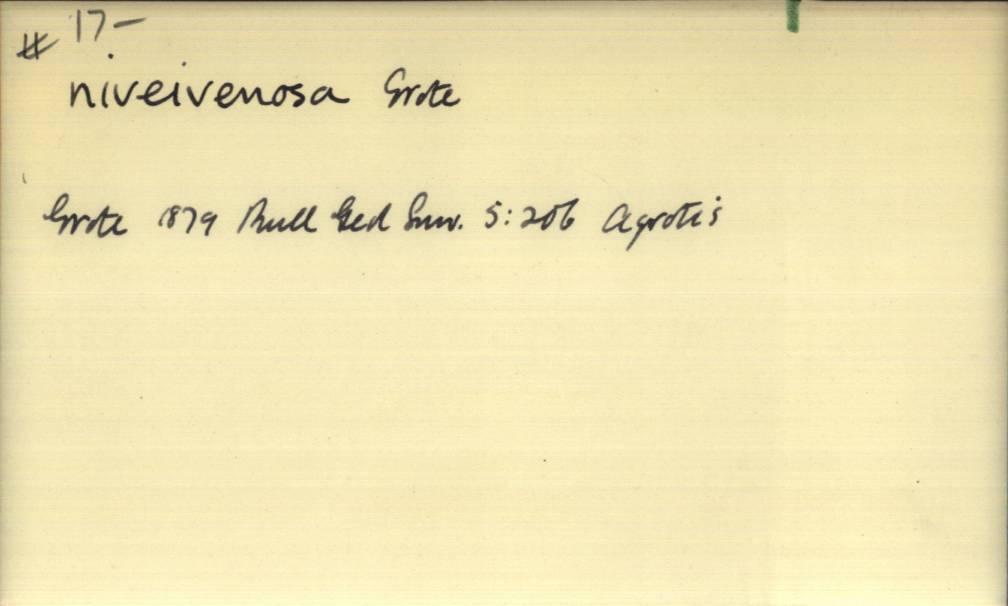 # 17-
niveivenosa Grote
Grote 1879 Bull Geol Surv. 5:206 Agrotis